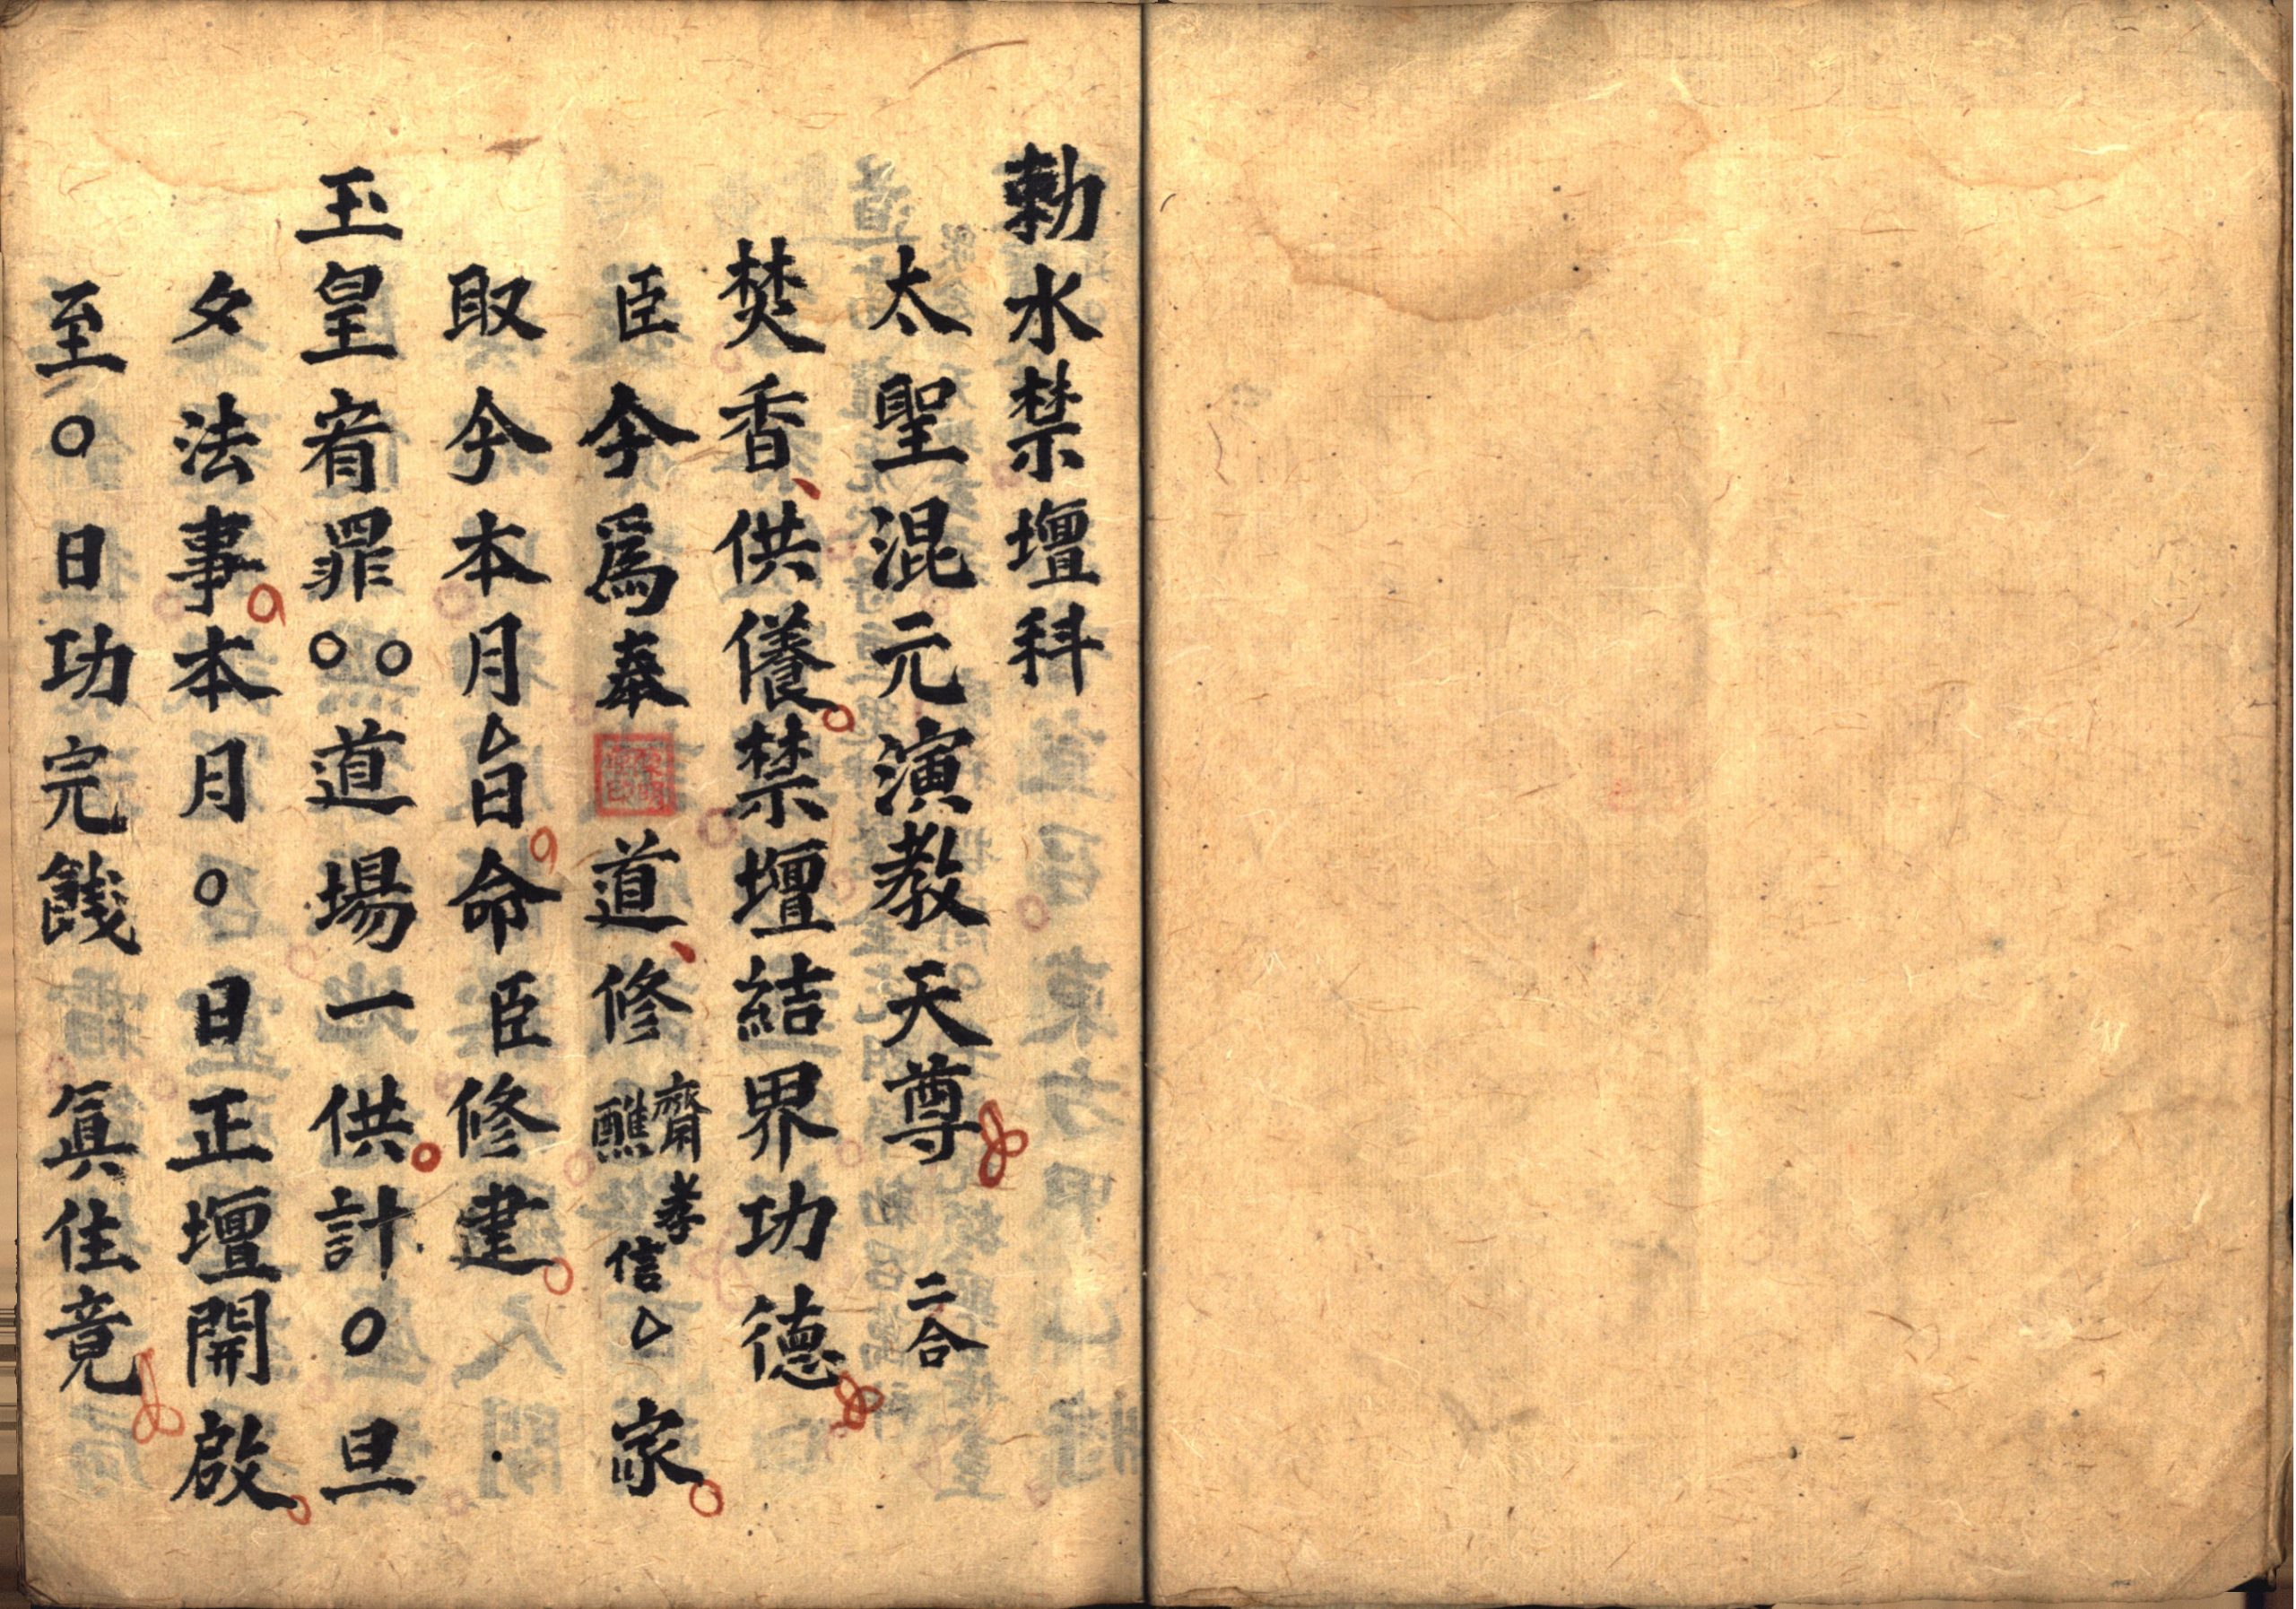 勅水禁壇科
太聖混元演教天尊 二合
焚香供養禁壇結界功德
臣今爲奉道修齋醮孝信△家
取今本月△日命臣修建
玉皇宥罪○○道場一供計○旦
夕法事本月○日正壇開啟
至○日功完餞真佳竟